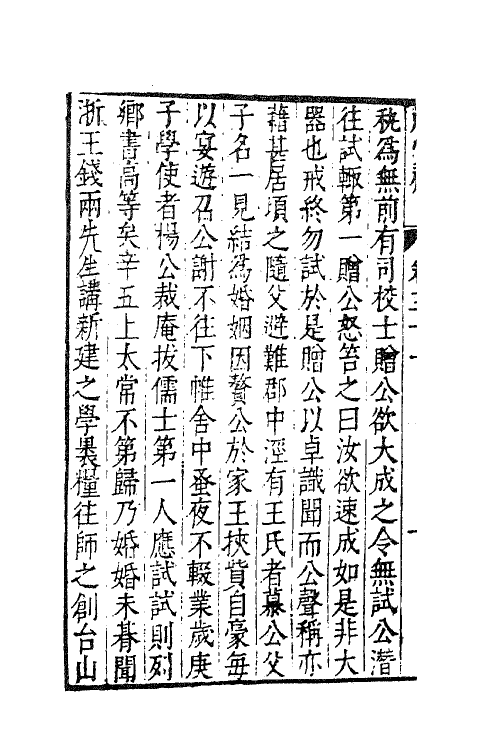 稅為無前有司校士贈公欲大成之令無試公潛
往試輙第一贈公怒笞之曰汝欲速成如是非大
器也戒終勿試於是贈公以卓識聞而公聲稱亦
藉甚居頃之隨父避難郡中涇有王氏者慕公父
子名一見結為婚姻因贅公於家王挾貲自豪每
以宴遊召公謝不往下帷舍中蚤夜不輟業歲庚
子學使者楊公裁庵拔儒士第一人應試試則列
鄉書高等矣辛丑上太常不第歸乃婚婚未朞聞
浙王錢兩先生講新建之學裹糧往師之創台山